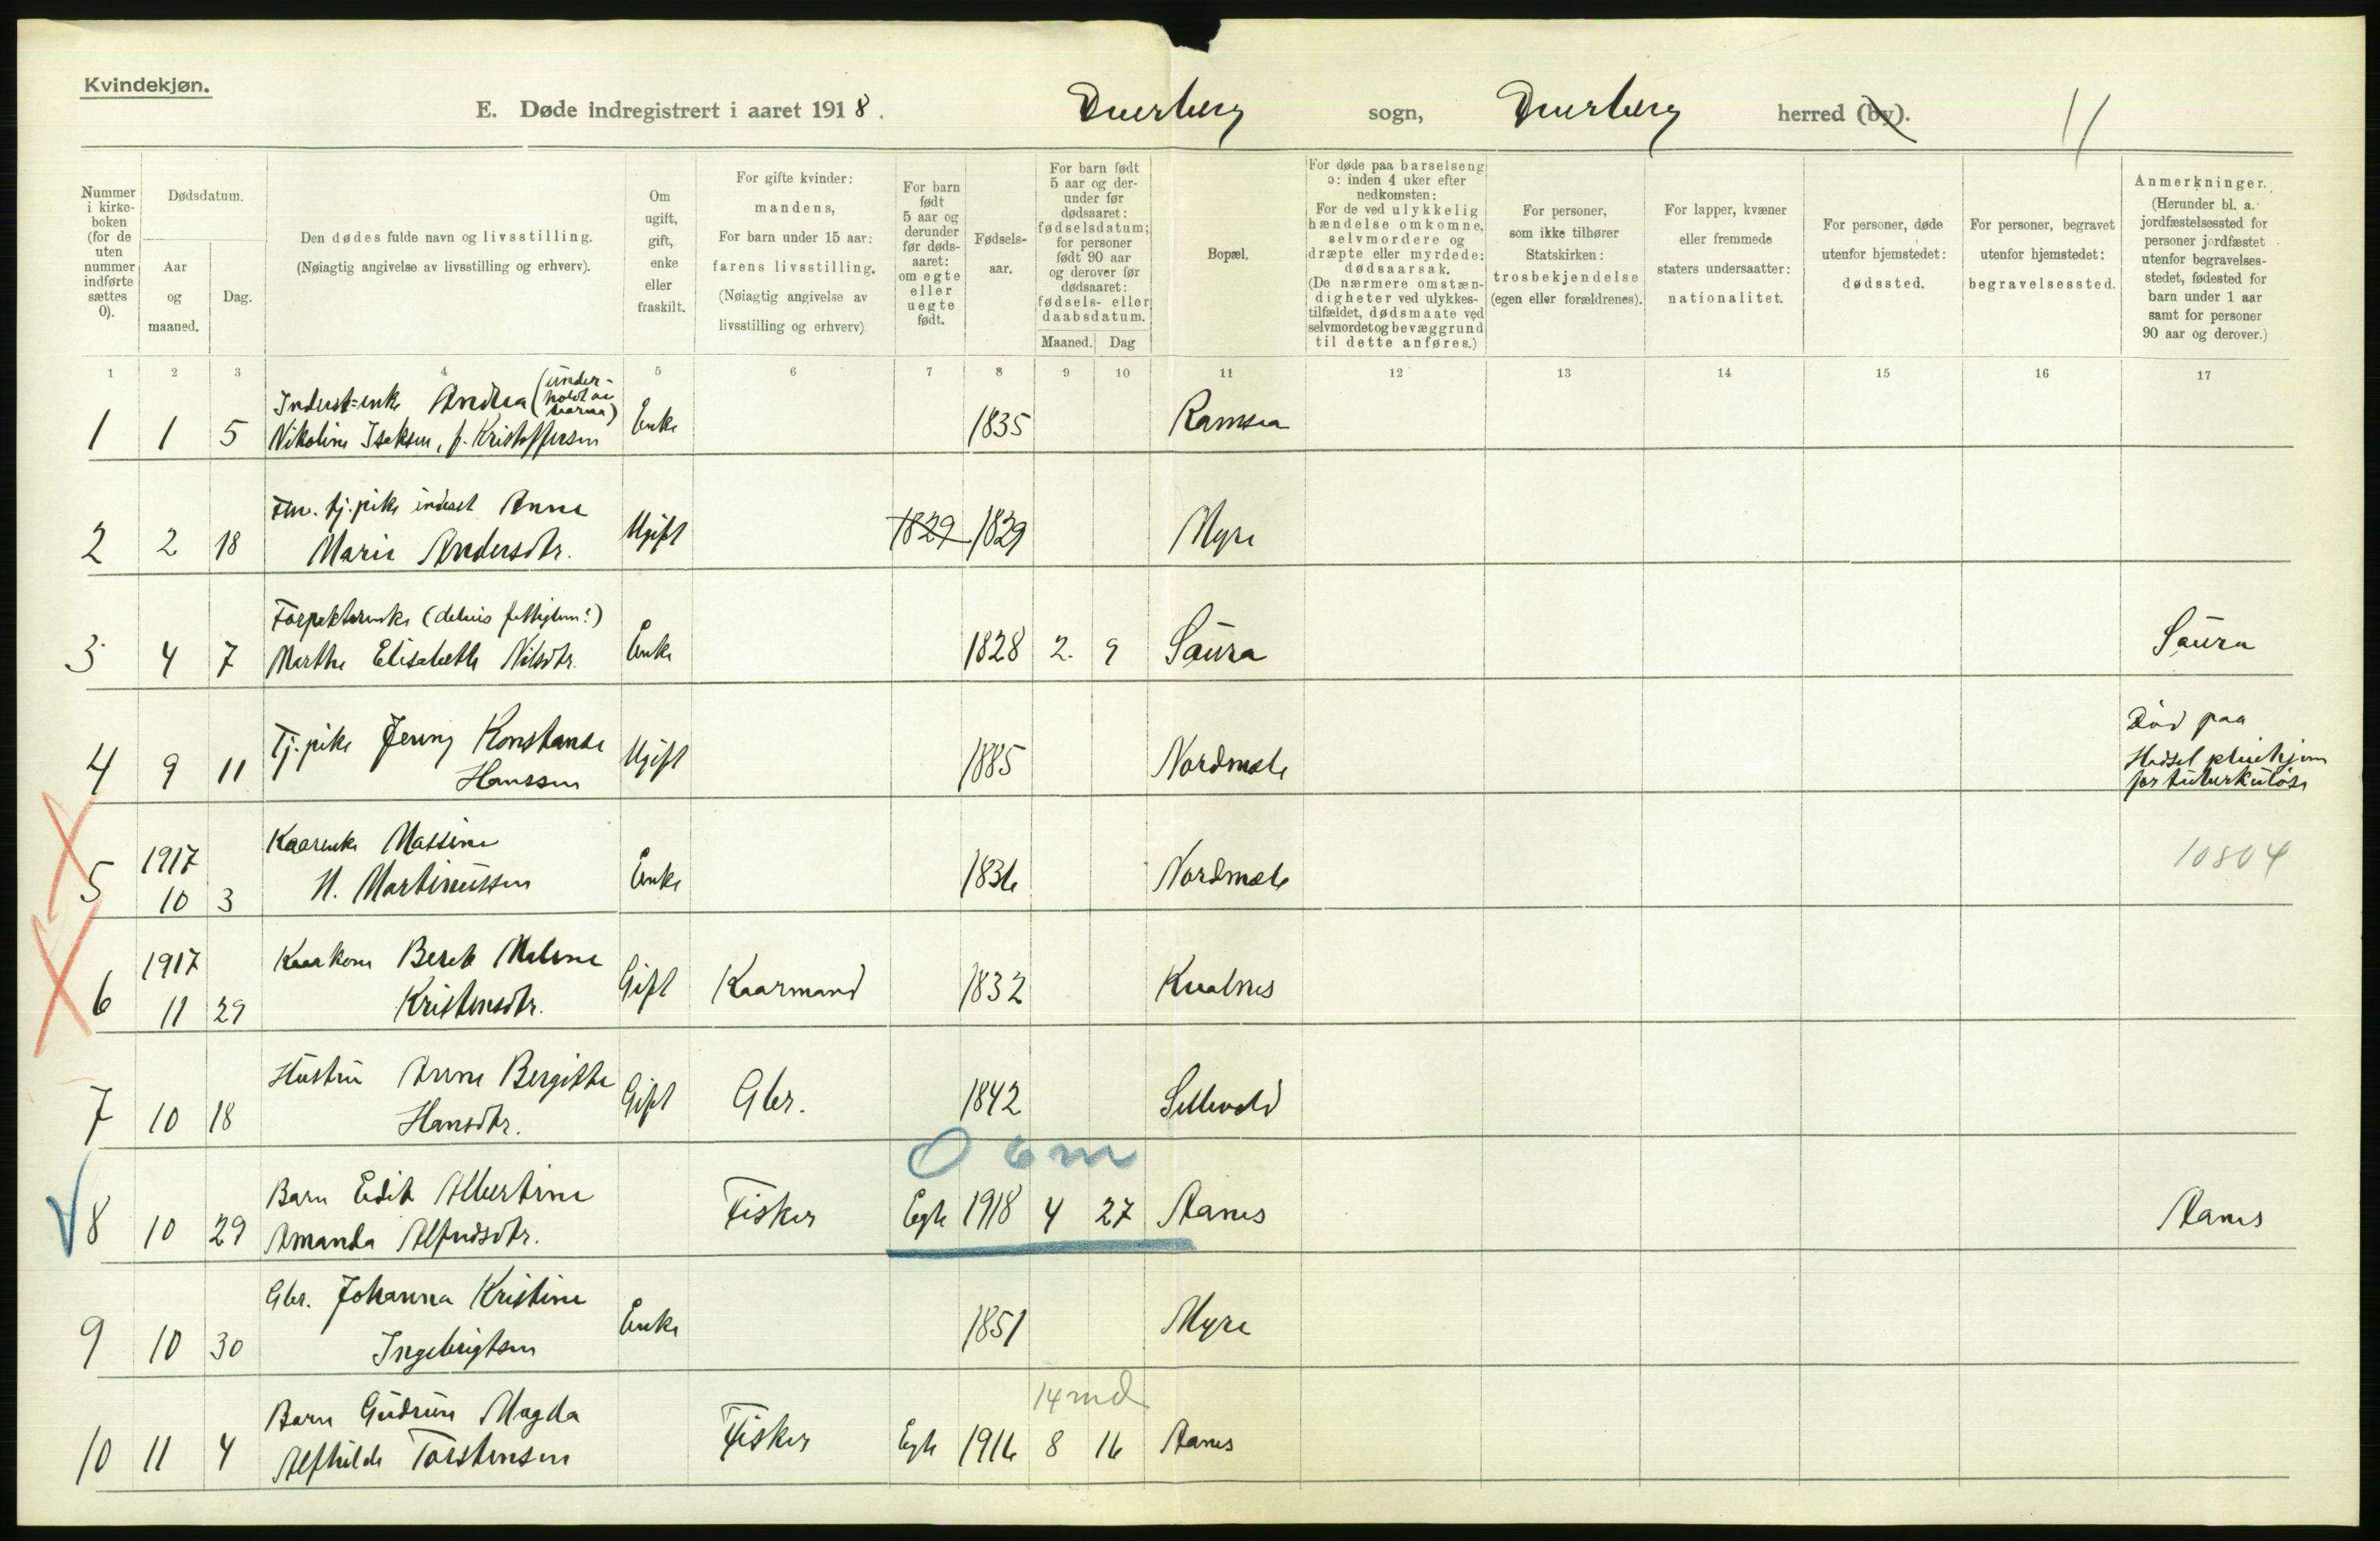 Kvindekjøn.
E. Døde indregistrert i aaret 1918. Dverberg sogn, Dverberg herred (by). 11
Nummer i kirke-boken (for de uten nummer indførte sættes 0).
Dødsdatum.
Aar og maaned.
Dag.
Den dødes fulde navn og livsstilling.
(Nøiagtig angivelse av livsstilling og erhverv).
Om ugift, gift, enke eller fraskilt.
For gifte kvinder: mandens,
For barn under 15 aar: farens livsstilling.
(Nøiagtig angivelse av livsstilling og erhverv)
For barn født 5 aar og derunder før døds-aaret: om egte eller uegte født.
Fødsels-aar.
For barn født 5 aar og der-under før dødsaaret: fødselsdatum; for personer født 90 aar og derover før dødsaaret: fødsels- eller daabsdatum.
Maaned. Dag
Bopæl.
For døde paa barselseng ɔ: inden 4 uker efter nedkomsten:
For de ved ulykkelig hændelse omkomne, selvmordere og dræpte eller myrdede: dødsaarsak.
(De nærmere omstæn-digheter ved ulykkes-tilfældet, dødsmaate ved selvmordet og bevæggrund til dette anføres.)
For personer, som ikke tilhører Statskirken: trosbekjendelse (egen eller forældrenes).
For lapper, kvæner eller fremmede staters undersaatter: nationalitet.
For personer, døde utenfor hjemstedet: dødssted.
For personer, begravet utenfor hjemstedet: begravelsessted.
Anmerkninger.
(Herunder bl. a. jordfæstelsessted for personer jordfæstet utenfor begravelses-stedet, fødested for barn under 1 aar samt for personer 90 aar og derover.)
1 2 3 4 5 6 7 8 9 10 11 12 13 14 15 16 17
Inderst=enke Andrea (under-holdt av barna)
1 1 5 Nikoline Isaksen, f. Kristoffersen Enke 1835 Ramsaa
tj. pike inderst Anne
2 2 18 Marie Andersdtr. Ugift 1829 1839 Myre
Forpakterenke (delvis fattigunn.)
3 4 7 Marthe Elisabeth Nilsdtr. Enke 1828 2. 9 Saura Saura
4 9 11 Tj. pike Jenny Konstanse Hanssen Ugift 1885 Nordmæle Død paa Hadsel pleiehjem for tuberkuløse
1917
5 10 3 Kaarenke Massine N. Martinussen Enke 1836 Nordmæle 10804
1917
6 11 29 Kaarkone Beret Malene Kristensdtr. Gift Kaarmand 1832 Kvalnes
7 10 18 Hustru Anne Bergitte Hansdtr. Gift Gbr. 1842 Sellevold
0 6 m
8 10 29 Barn Edit Albertine Amanda Alfredsdtr. Fisker Egte 1918 4 27 Aanes Aanes
9 10 30 Gbr. Johanna Kristine Ingebrigtsen Enke 1851 Myre
14 md
10 11 4 Barn Gudrun Magda Alfhilde Torstensen Fisker Egte 1916 8 16 Aanes